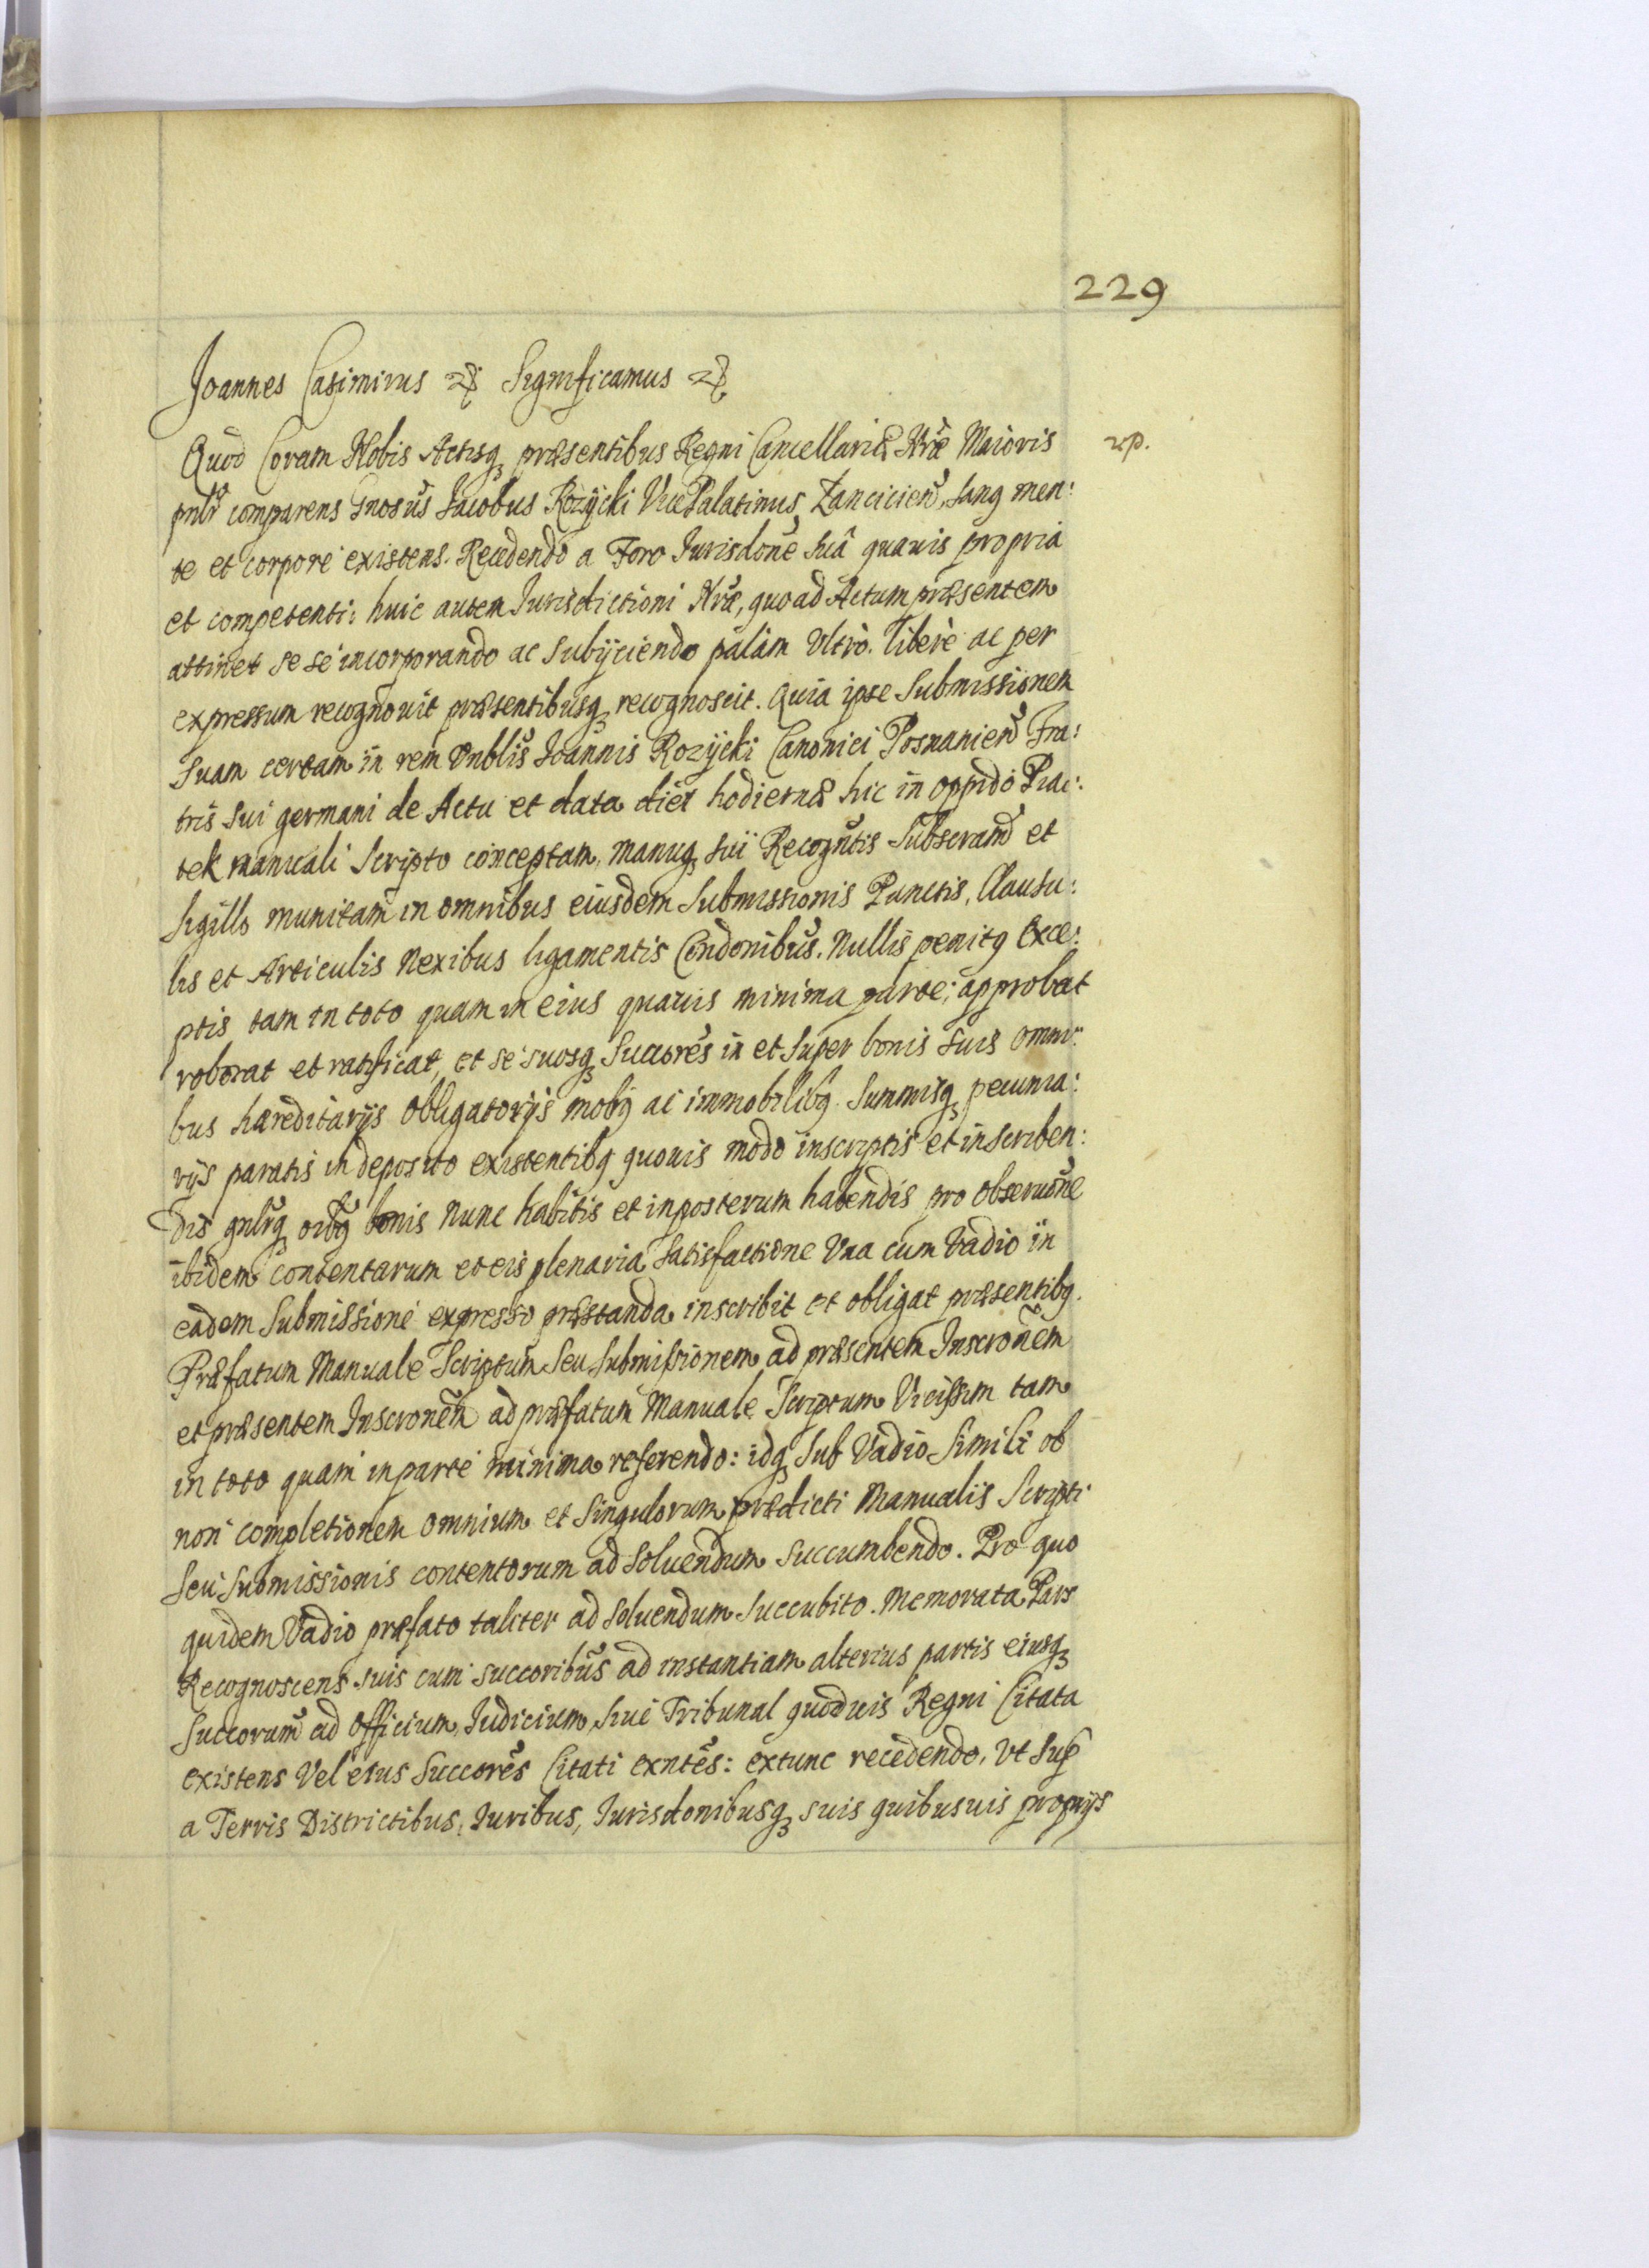 229
Joannes Casimirus etc Significamus etc
Quod Coram Nobis Actisq3 præsentibus Regni Cancellariæ Nræ Maioris
rp.
pnlr comparens Gnosus Jacobus Rozÿcki VicePalatinus Lanciciens, sanq men:
te et corpore existens. Recedendo a Foro Jurisdone suâ quauis propria
et competenti: huic autem Jurisdictioni Nræ, quo ad Actum præsentem
attinet se se incorporando ac subÿciendo palàm Vltrò. liberè ac per
expressum recognouit præsentibusq3 recognoscit. Quia ipse Submissionem
suam certam in rem Vnblis Joannis Rozÿcki Canonici Posnanien Fra:
tris sui germani de Actu et data diei hodiernæ hic in oppido Piac:
tek manuali scripto conceptam, manuq3 sui Recogntis subscram et
sigillo munitam in omnibus eiusdem Submissionis Punctis, Clausu:
lis et Articulis Nexibus ligamentis Condonibus. Nullis penitq Exce:
ptis tam in toto quam in eius quauis minima parte; approbat
roborat et ratificat, et se suosq3 Succores in et super bonis suis omni:
bus hæreditarÿs obligatorÿs mobq ac immobilibq. Summisq3 pecunia:
rÿs paratis in deposito existentibq quouis modo inscriptis et inscriben:
dis gnlrq3 oibq bonis nunc habitis et inposterum habendis pro obseruone
ibidem contentarum et eis plenaria satisfactione Vna cum Vadio in
eadem Submissione expresso præstanda inscribit et obligat præsentibq.
Præfatum Manuale Scriptum seu submissionem ad præsentem Inscronem
et præsentem Inscronem ad præfatum Manuale Scriptum Vicissim tam
in toto quam in parte minima referendo: idq3 sub Vadio simili ob
non completionem omnium et singulorum prædicti Manualis Scripti
seu submissionis contentorum ad soluendum succumbendo. Pro quo
quidem Vadio præfato taliter ad soluendum succubito. Memorata Pars
Recognoscens suis cum succoribus ad instantiam alterius partis eiusq3
succorum ad Officium, Judicium, siue Tribunal quoduis Regni Citata
existens Vel eius Succores Citati exntes: extunc recedendo, Vt sup
a Terris Districtibus, Juribus, Jurisdonibusq3 suis quibusuis proprÿs